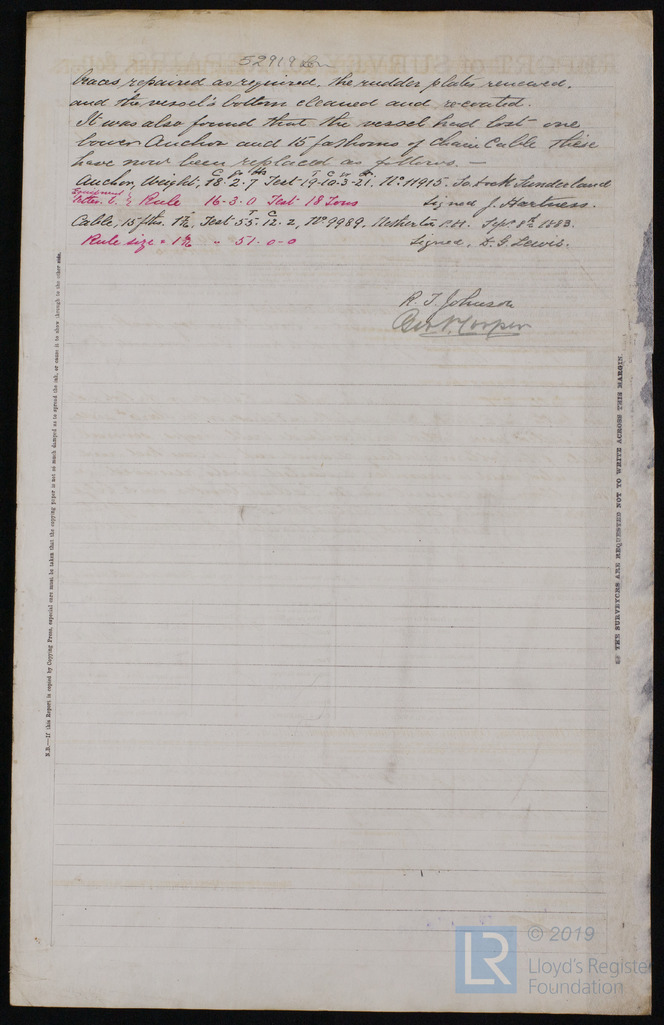 52919 Lon
braces repaired as required, the rudder plates renewed,
and the vessel's bottom cleaned and recoated.
It was also found that the vessel had lost one
bower Anchor and 15 fathoms of Chain Cable these
have now been replaced as follows. —
C Qr lbs T C Qr lbs
Anchor, Weight, 18.2.7 Test 19.10.3.21. No. 11915. Sunderland
Equipment
Letter Rule 16-3-0 Test 18 Tons Signed J. Hartness.
Cable, 15 fths. Test 55.12.2, No. 9989. Netherton P.H. Sept. 8th 1883.
Rule size = " 51.0-0 Signed, D. G. Lewis.
R. T. Johnson
N.B.—If this Report is copied by Copying Press, especial care must be taken that the copying paper is not so much damped as to spread the ink, or cause it to show through to the other side.
THE SURVEYORS ARE REQUESTED NOT TO WRITE ACROSS THIS MARGIN.
LR
© 2019
Lloyd's Register
Foundation